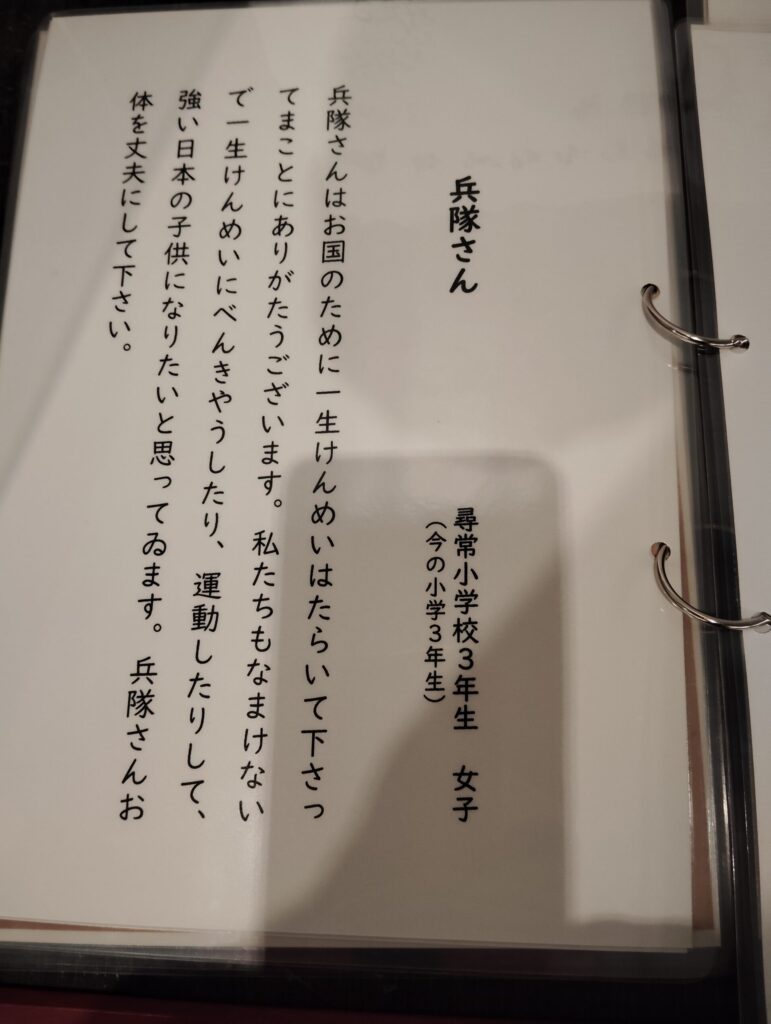 兵隊さん
尋常小学校3年生　女子
（今の小学3年生）
兵隊さんはお国のために一生けんめいはたらいて下さっ
てまことにありがたうございます。私たちもなまけない
で一生けんめいにべんきやうしたり、運動したりして、
強い日本の子供になりたいと思ってゐます。兵隊さんお
体を丈夫にして下さい。